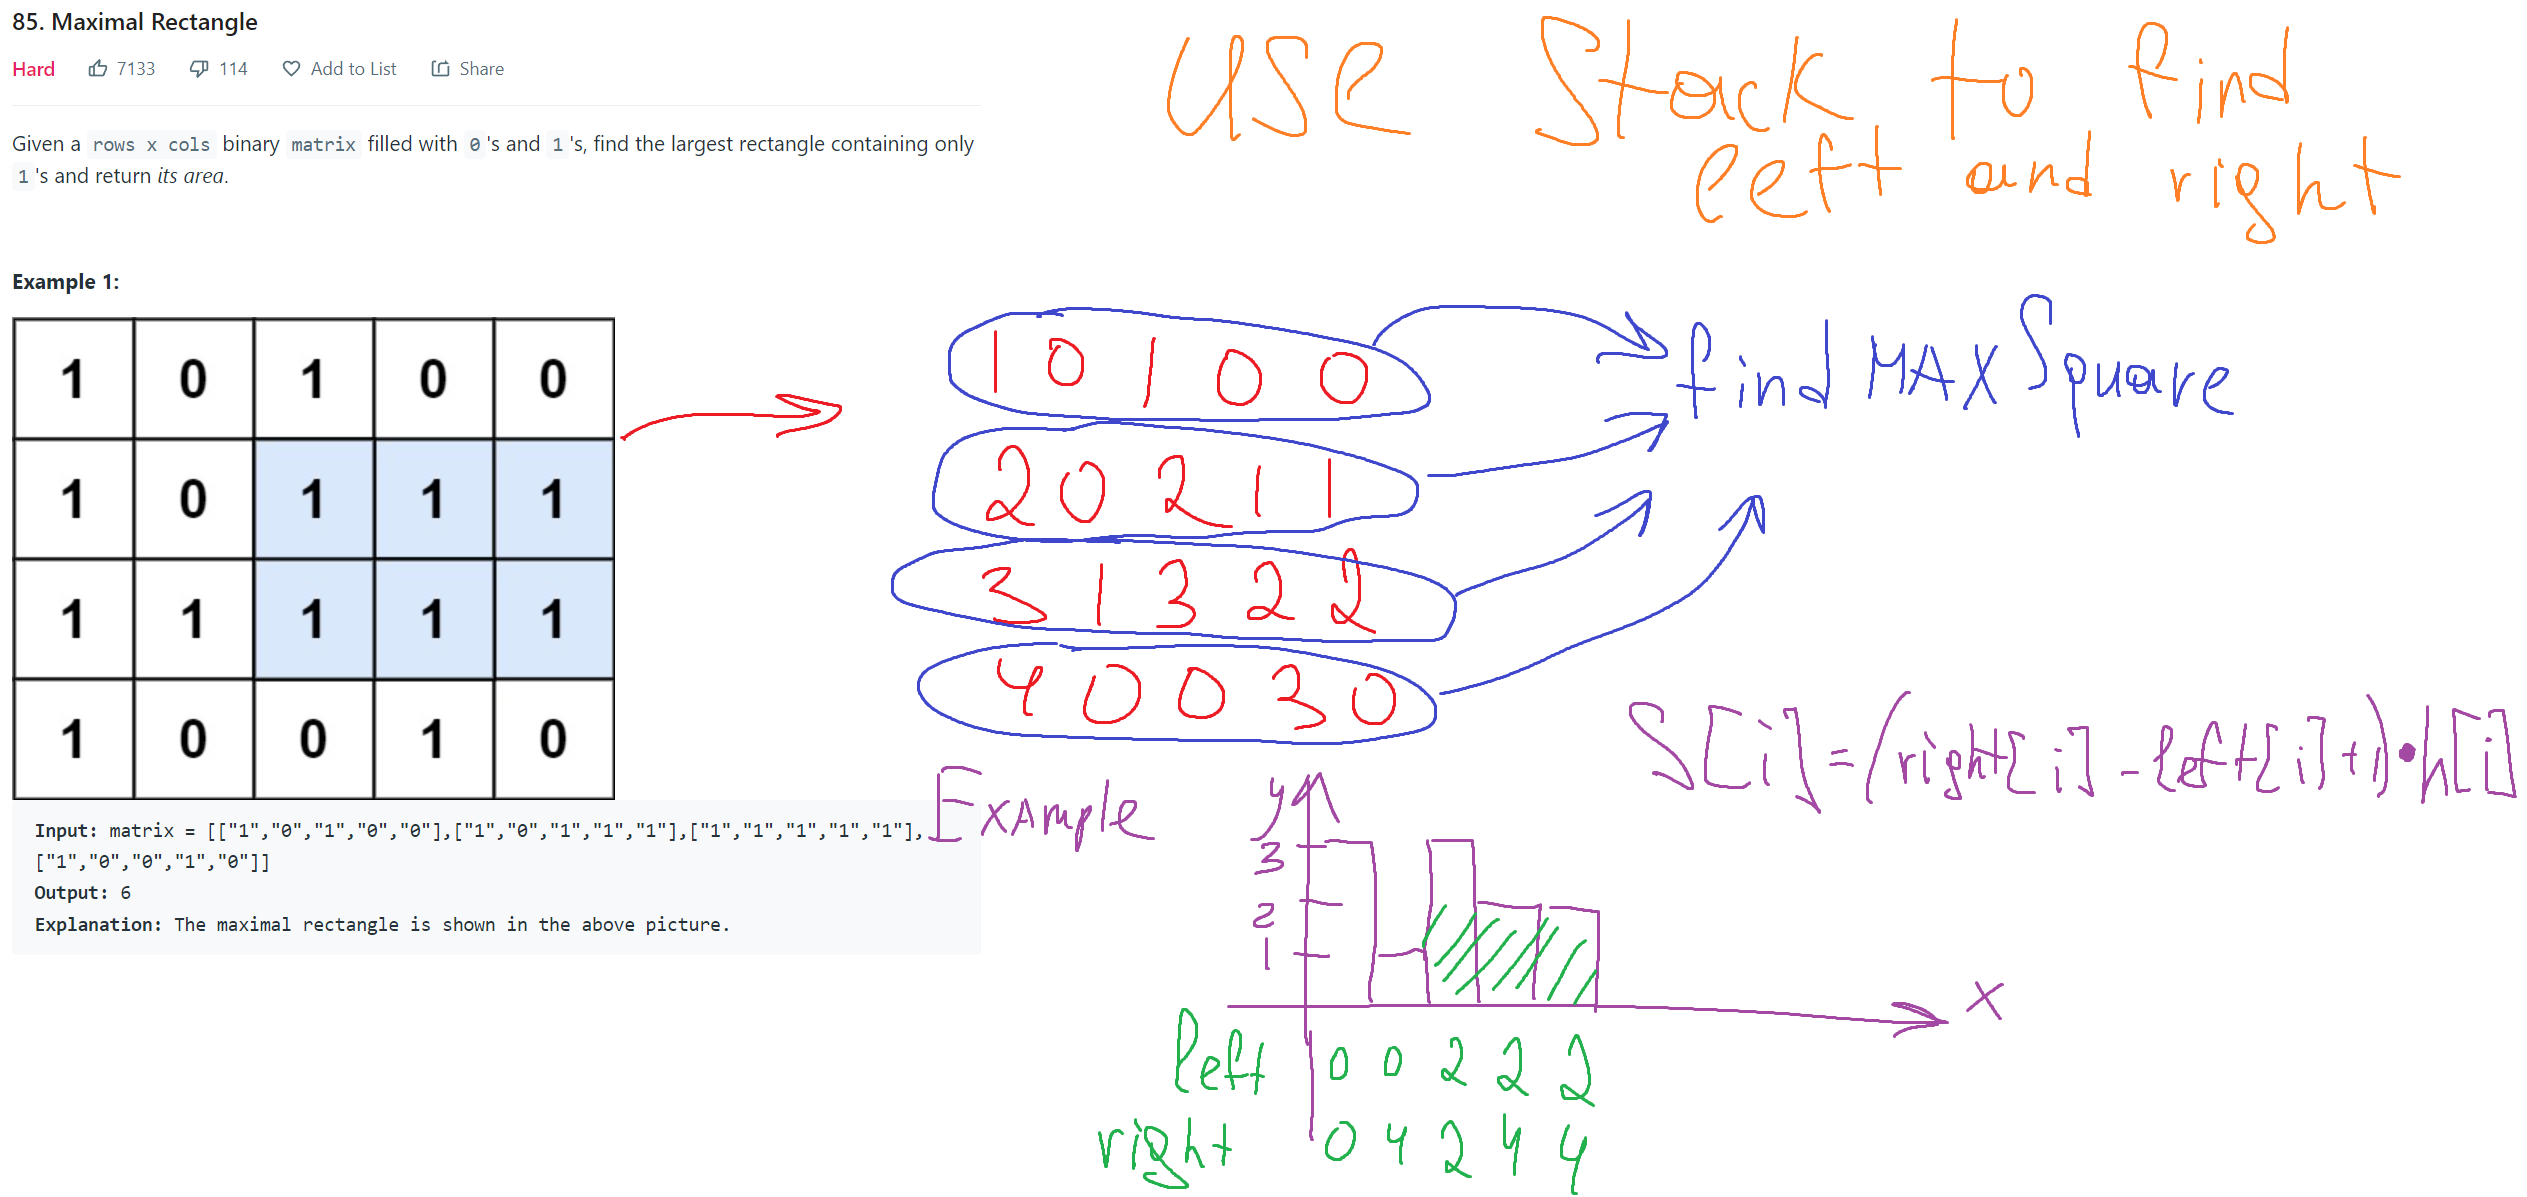 85. Maximal Rectangle
Hard 7133 114 Add to List Share
Given a rows x cols binary matrix filled with 0 's and 1 's, find the largest rectangle containing only
1 's and return its area.
Example 1:
1 0 1 0 0
1 0 1 1 1
1 1 1 1 1
1 0 0 1 0
Input: matrix = [["1","0","1","0","0"],["1","0","1","1","1"],["1","1","1","1","1"],
["1","0","0","1","0"]]
Output: 6
Explanation: The maximal rectangle is shown in the above picture.
USE Stack to find
left and right
1 0 1 0 0
2 0 2 1 1
3 1 3 2 2
4 0 0 3 0
find MAX Square
S[i]=(right[i]-left[i]+1)•h[i]
Example
y
3
2
1
x
left 0 0 2 2 2
right 0 4 2 4 4